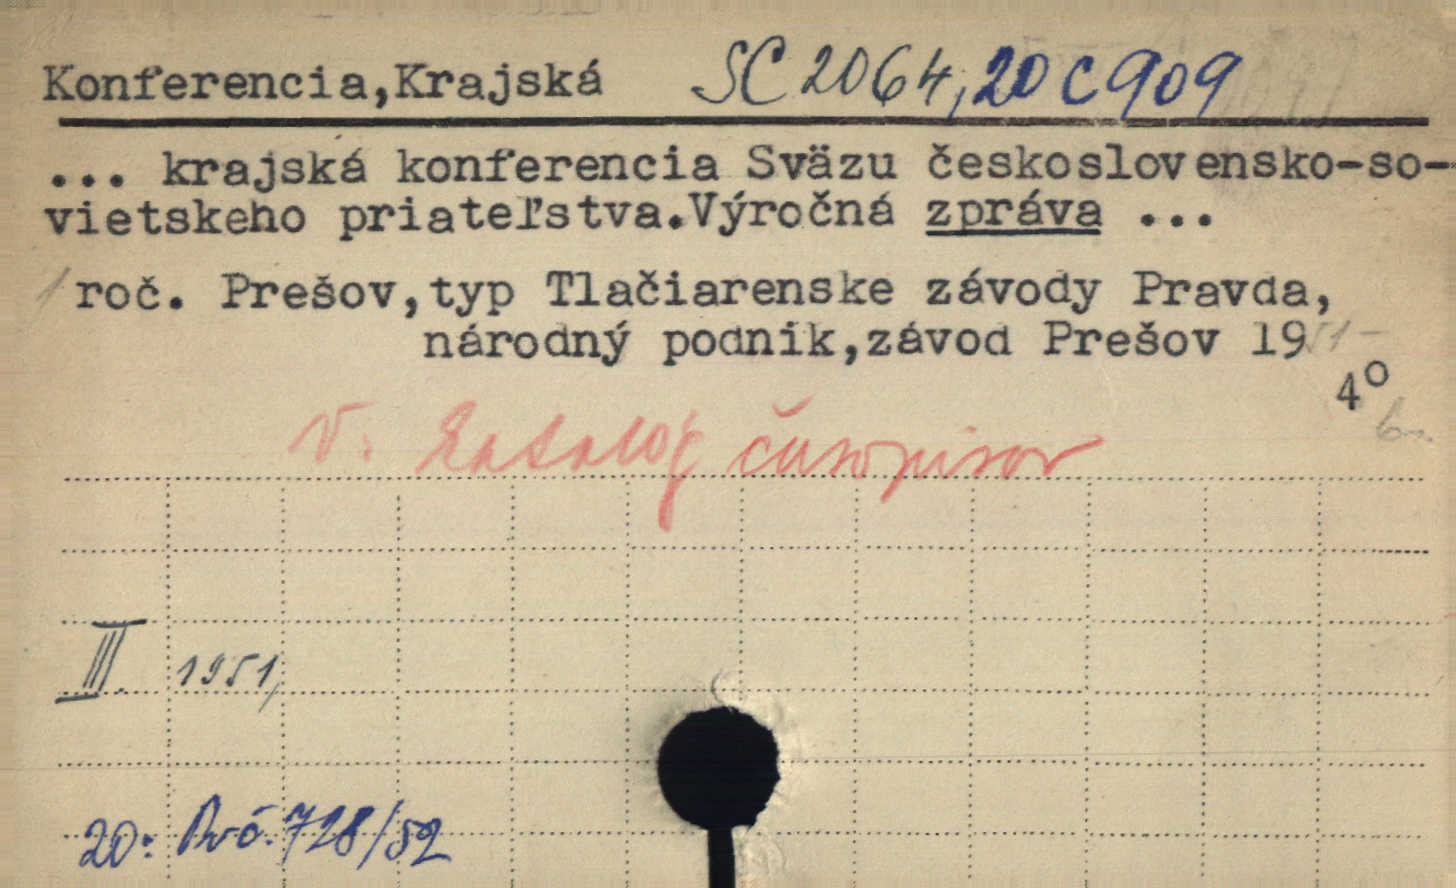 Konferencia,Krajská SC 2064, 20 C 909
... krajská konferencia Sväzu československo-so-
vietskeho priateľstva.Výročná zpráva ...
roč. Prešov,typ Tlačiarenske závody Pravda,
národný podnik,závod Prešov 1951-
4°
v. katalog časopisov
III. 1951,
20: 728/52